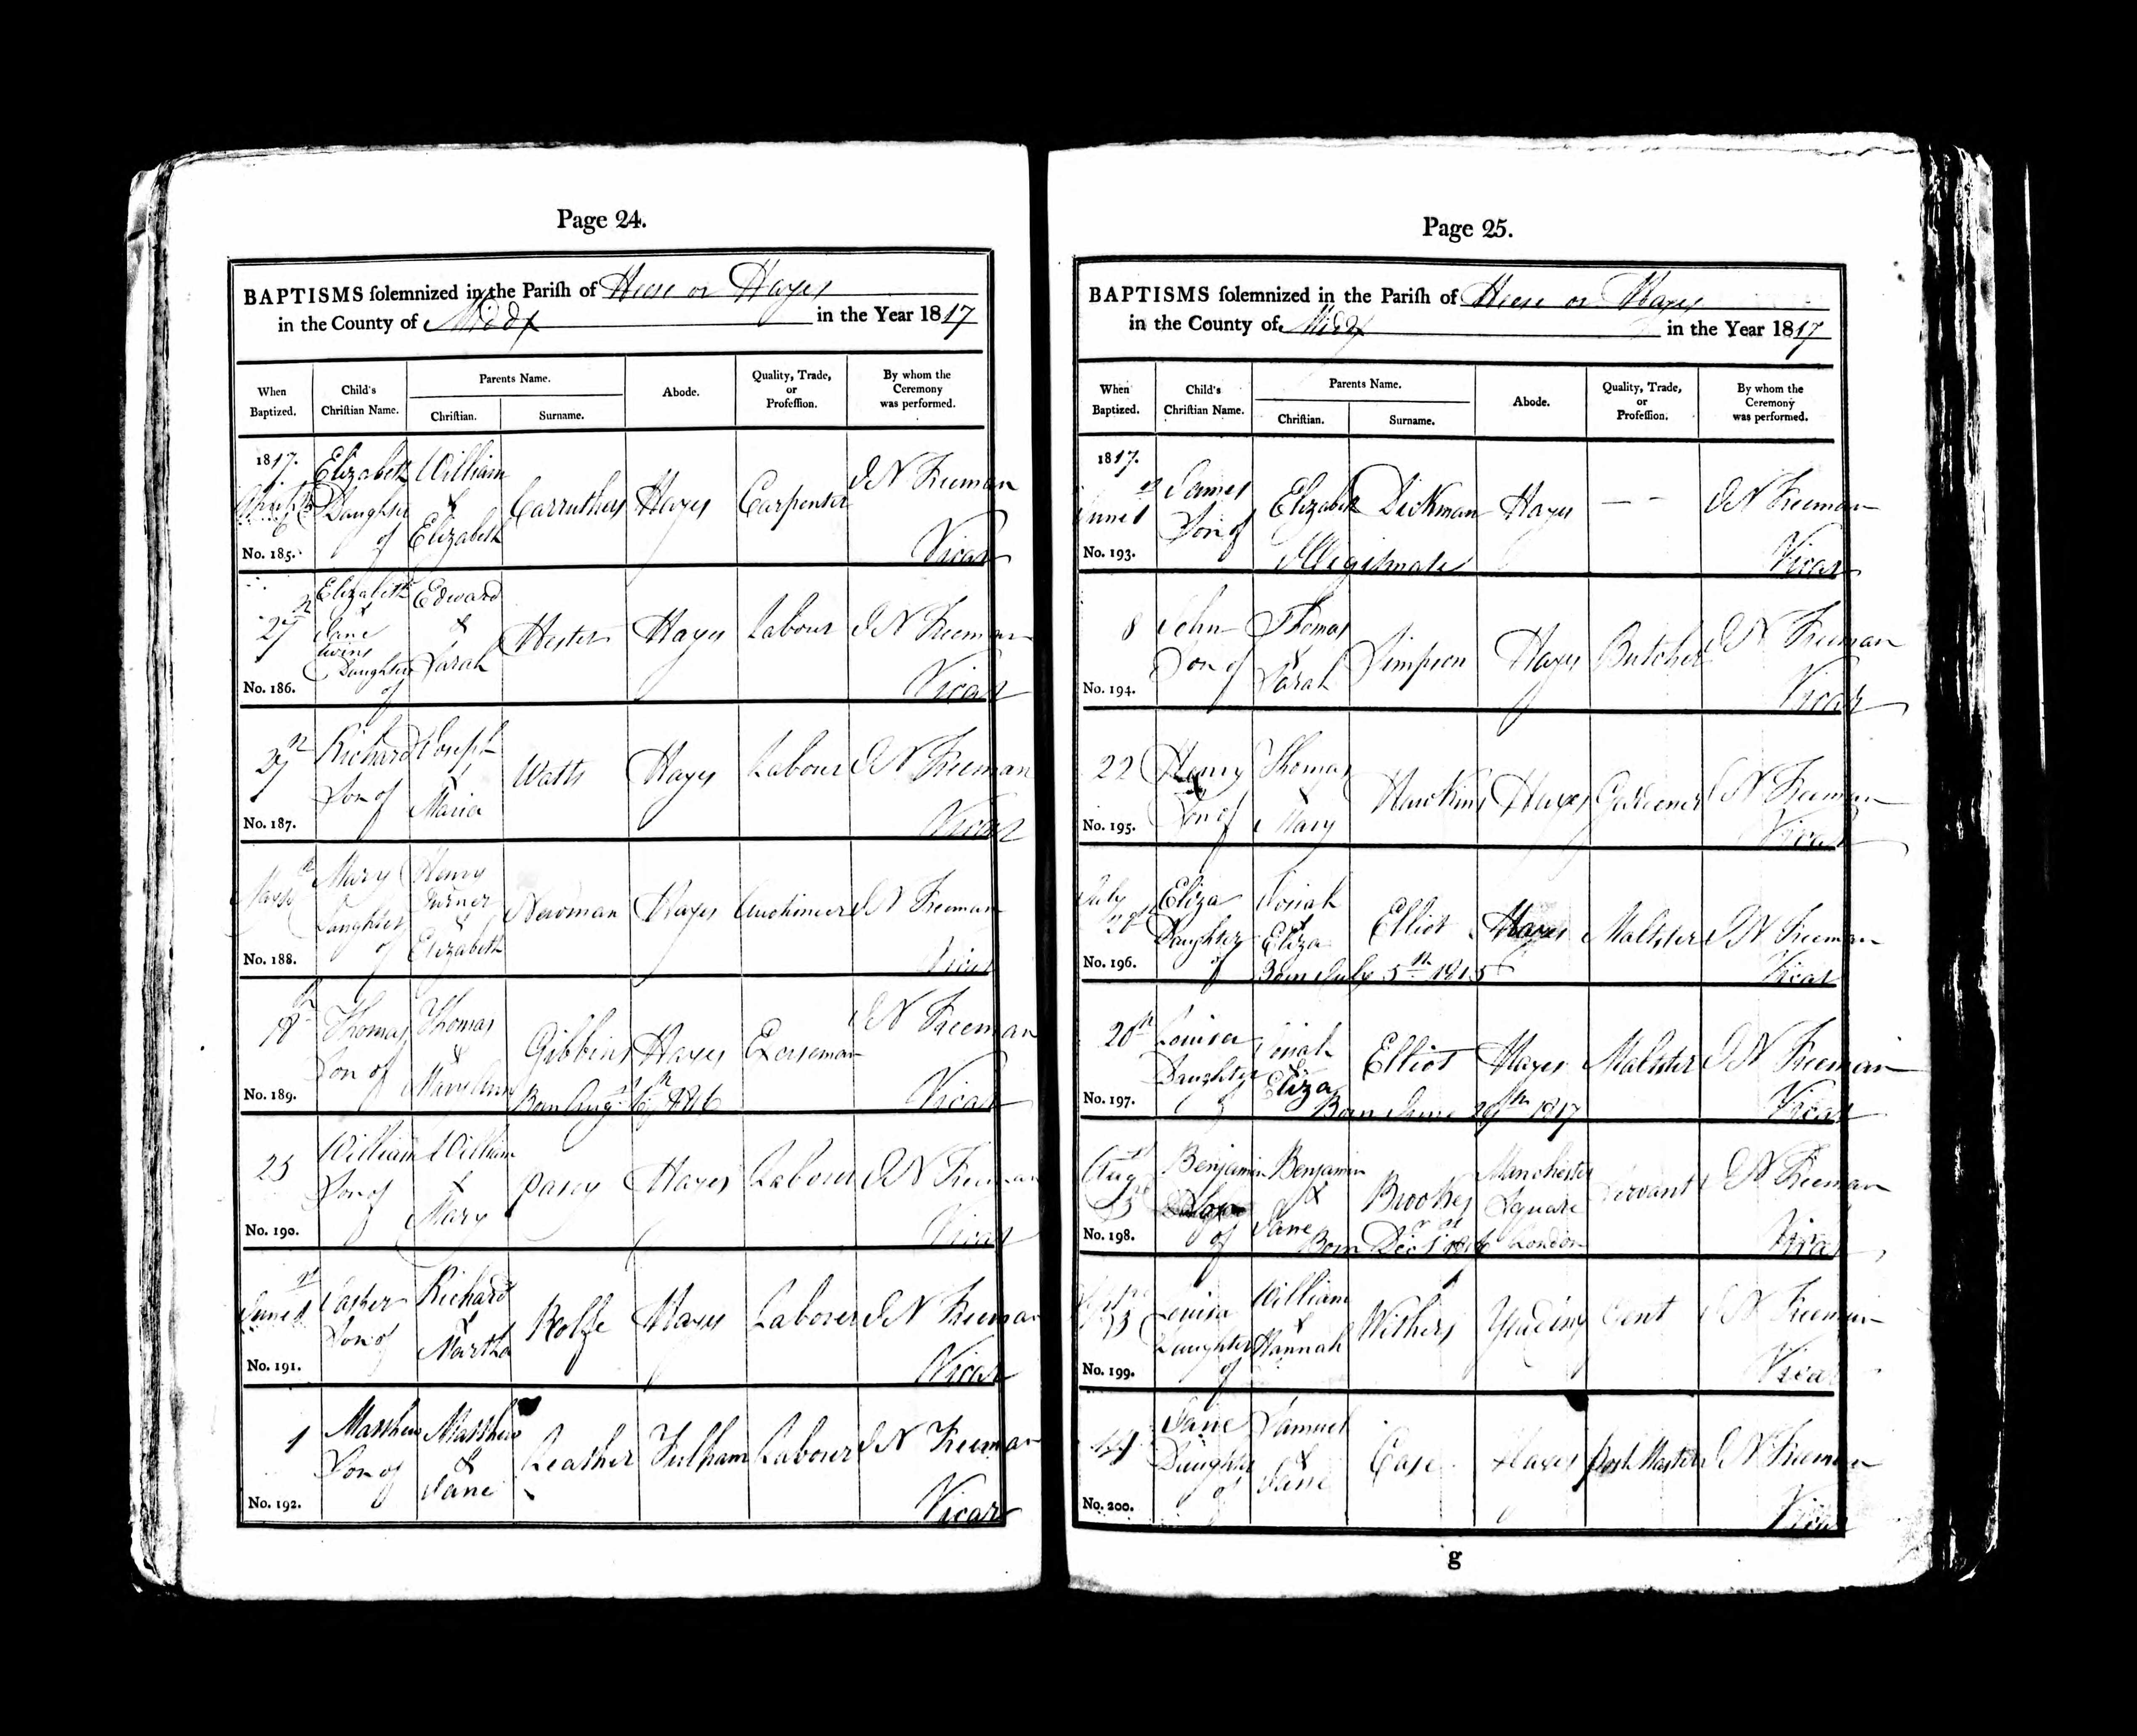 Page 24.
BAPTISMS solemnized in the Parish of Heese or Hayes
in the County of Middx in the Year 1817
When Baptized. Child's Christian Name. Parents Name. Christian. Surname. Abode. Quality, Trade, or Profession. By whom the Ceremony was performed.
1817. April 6 No. 185. Elizabeth Daughter of William & Elizabeth Carruthers Hayes Carpenter I N Freeman Vicar
27th No. 186. Elizabeth & Jane twins Daughters of Edward & Sarah Hester Hayes Labour I N Freeman Vicar
27th No. 187. Richard Son of Joseph & Maria Watts Hayes Labourer I N Freeman Vicar
May No. 188. Mary Daughter of Henry Turner & Elizabeth Newman Hayes Auctineer I N Freeman Vicar
18th No. 189. Thomas Son of Thomas & Mary Ann Gibbins Hayes Exciseman I N Freeman Vicar
Born Augst 1816
25 No. 190. William Son of William & Mary Pasey Hayes Laborer I N Freeman Vicar
June 1st No. 191. Son of Richard & Martha Rolfe Hayes Laborer I N Freeman Vicar
1 No. 192. Matthew Son of Matthew & Jane Leather Fulham Labourer I N Freeman Vicar
Page 25.
BAPTISMS solemnized in the Parish of Heese or Hayes
in the County of Middx in the Year 1817
When Baptized. Child's Christian Name. Parents Name. Christian. Surname. Abode. Quality, Trade, or Profession. By whom the Ceremony was performed.
1817. June 1st No. 193. James Son of Elizabeth Dickman Hayes — - I N Freeman Vicar
Illegitimate
8 No. 194. John Son of Thomas & Sarah Simpson Hayes Butcher I N Freeman Vicar
22 No. 195. Henry Son of Thomas & Mary Hawkins Hayes Gardener I N Freeman Vicar
July 20th No. 196. Eliza Daughter of Josiah & Eliza Elliot Hayes Malster I N Freeman Vicar
Born July 5th 1815
20th No. 197. Louisa Daughter of Josiah & Eliza Elliot Hayes Malster I N Freeman Vicar
Born June 1817
Augst No. 198. Benjamin Son of Benjamin & Jane Brookes Manchester Square London Servant I N Freeman Vicar
Born Decr 1st 1816
No. 199. Louisa Daughter of William & Hannah Withers Yeading Gent I N Freeman Vicar
14 No. 200. Jane Daughter of Samuel & Jane Case Hayes Post Master I N Freeman Vicar
g